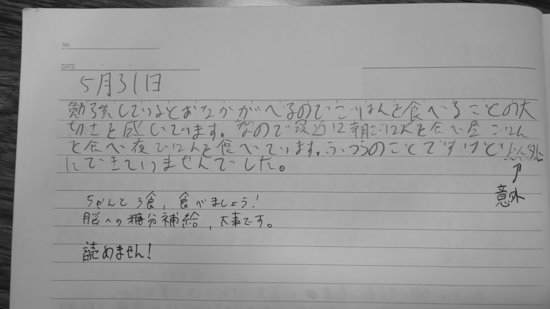 No.
DATE
5月31日
勉強しているとおなかがへるのでごはんを食べることの大
切さを感じています。なので最近は朝ごはんを食べ昼ごはん
を食べ夜ごはんを食べています。ふつうのことですけど
にできていませんでした。
↑
意外
ちゃんと3食、食べましょう!
脳への糖分補給、大事です。
読めません!